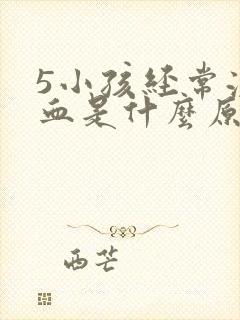 5小孩经常
血是什麼原
西芒